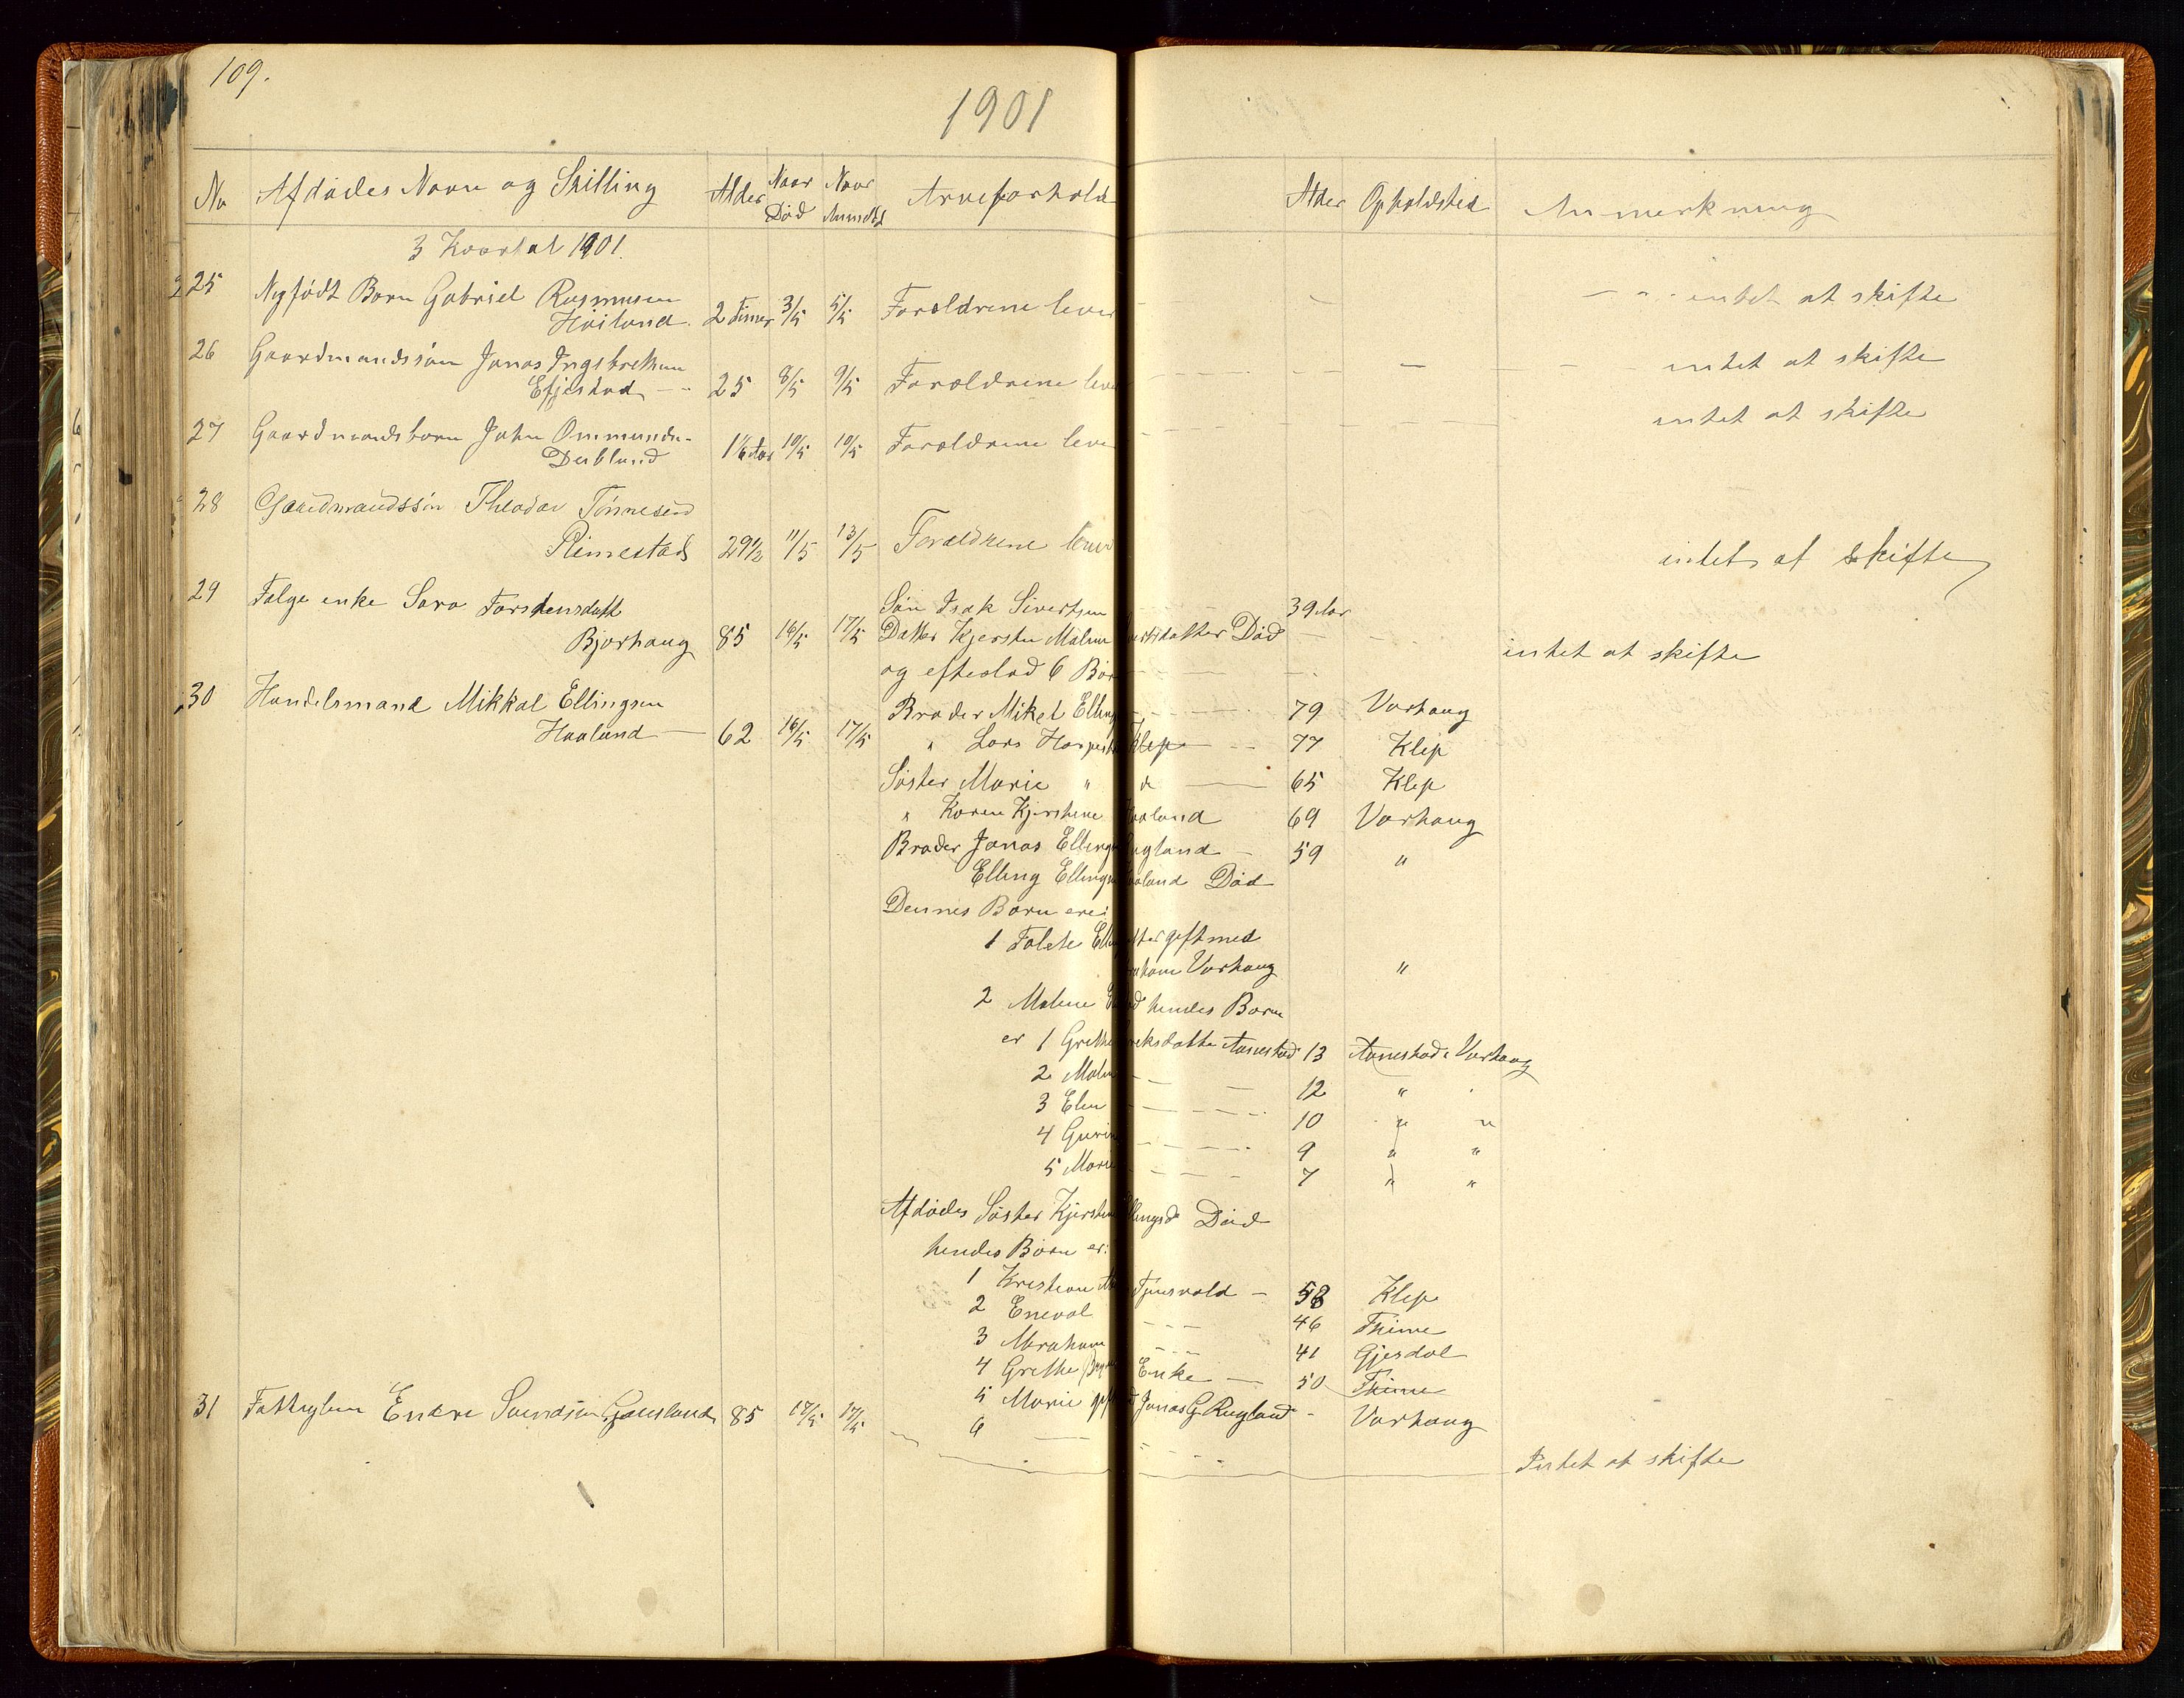 109.
1901
No Afdødes Navn og Stilling Alder Naar Død Naar Anmeldt Arveforhold Alder Opholdsted Anmerkning
3 Kvartal 1901.
25 Nyfødt Barn Gabriel Rasmusen
Høiland. 2 Timer 3/5 5/5 Forældrene lever - - intet at skifte
26 Gaardmandssøn Jonas Ingebretsen
Efjestad - 25 8/5 9/5 Forældrene leve - - intet at skifte
27 Gaardmandsbarn John Ommunds-
Dubland 1 1/6 Aar 10/5 10/5 Forældrene leve intet at skifte
28 Gaardmandssøn Theodor Tønnesen
Rimestad 29 1/2 11/5 13/5 Forældrene lever intet at skifte
29 Folge enke Sara Torstensdatt Søn Isak Sivertsen 39 Aar
Bjorhaug 85 16/5 17/5 Datter Kjersten Malene ertsdatter Død - intet at skifte
og efterlod 6 Bør
30 Handelsmand Mikkal Ellingsen Broder Mikel Elling 79 Varhaug
Haaland - 62 16/5 17/5 " Lars Harpest Klep - 77 Klep
Søster Marie " " - 65 Klep
" Karen Kjerstene Haaland 69 Varhaug
Broder Jonas Ellings Rugland - 59 "
Elling Ellings Haaland Død
Dennes Børn ere:
1 Tolete Ell tter gift med
raham Varhaug "
2 Malene E Død hendes Børn
er 1 Grethe reksdatte Aanestad 13 Aanestad i Varhaug
2 Malen - 12 "
3 Elen - 10 " "
4 Guri - 9 " "
5 Marie - 7 " "
Afdødes Søster Kjersten Ellingsd Død
hendes Børn er:
1 Kristian Tjensvold - 58 Klep
2 Eneval - 46 Thime
3 Abraham - 41 Gjesdal
4 Grethe Enke - 50 Thime
5 Marie gift d Jonas G Rugland - Varhaug
6 -
31 Fattiglem Endre Svendsen Gausland 85 17/5 17/5 Intet at skifte